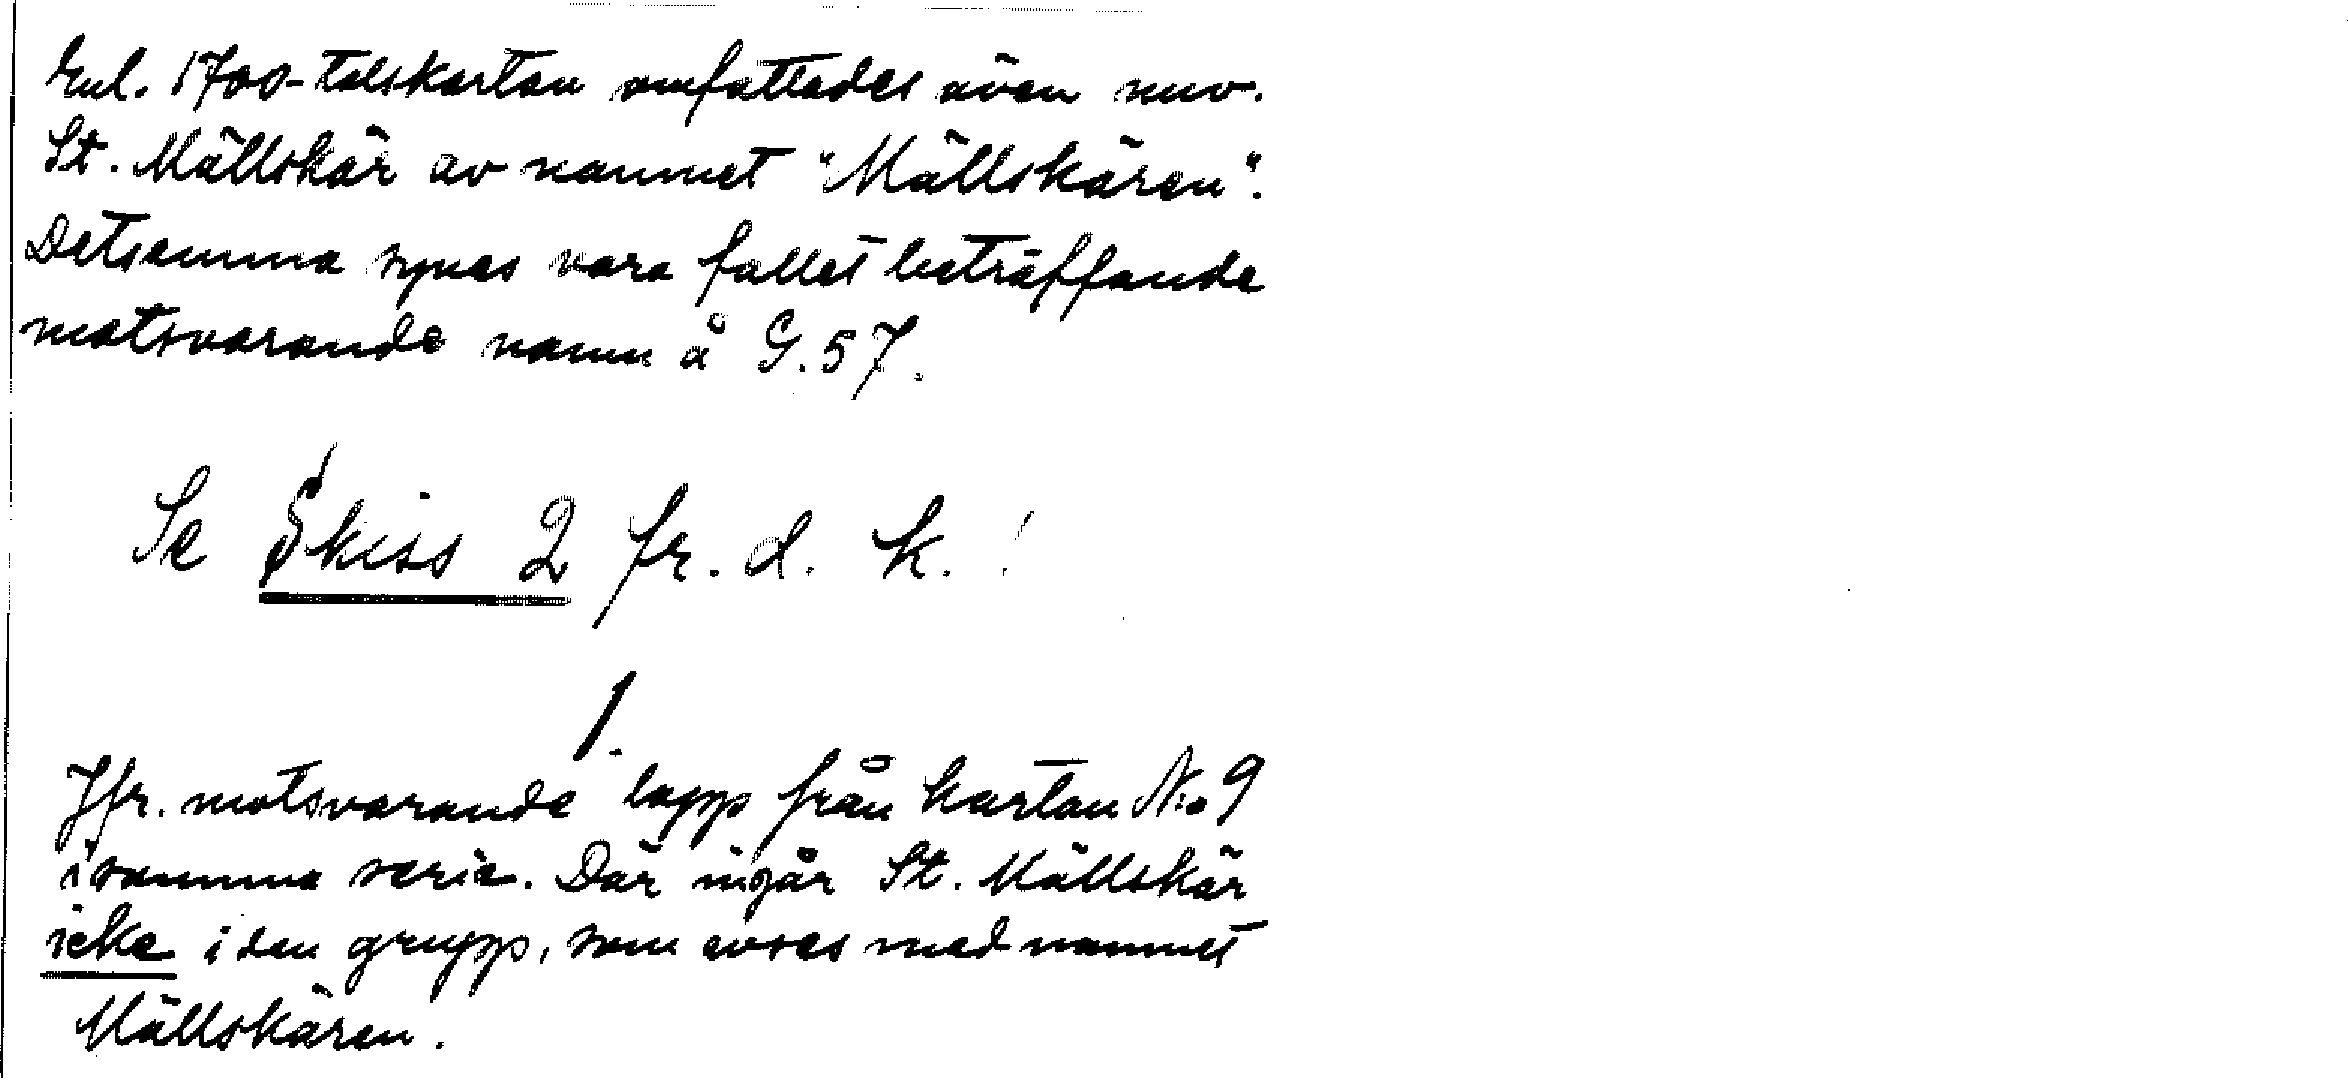 Enl. 1700-talskartan omfattades även nuv.
St. Mällskär av namnet "Mällskären".
Detsamma synes vara fallet beträffande
motsvarande namn å G. 57.
Se Skiss 2 fr. d. k.!
1.
Jfr. motsvarande lapp från kartan No 9
i samma serie. Där ingår St. Mällskär
icke i den grupp, som avses med namnet
Mällskären.